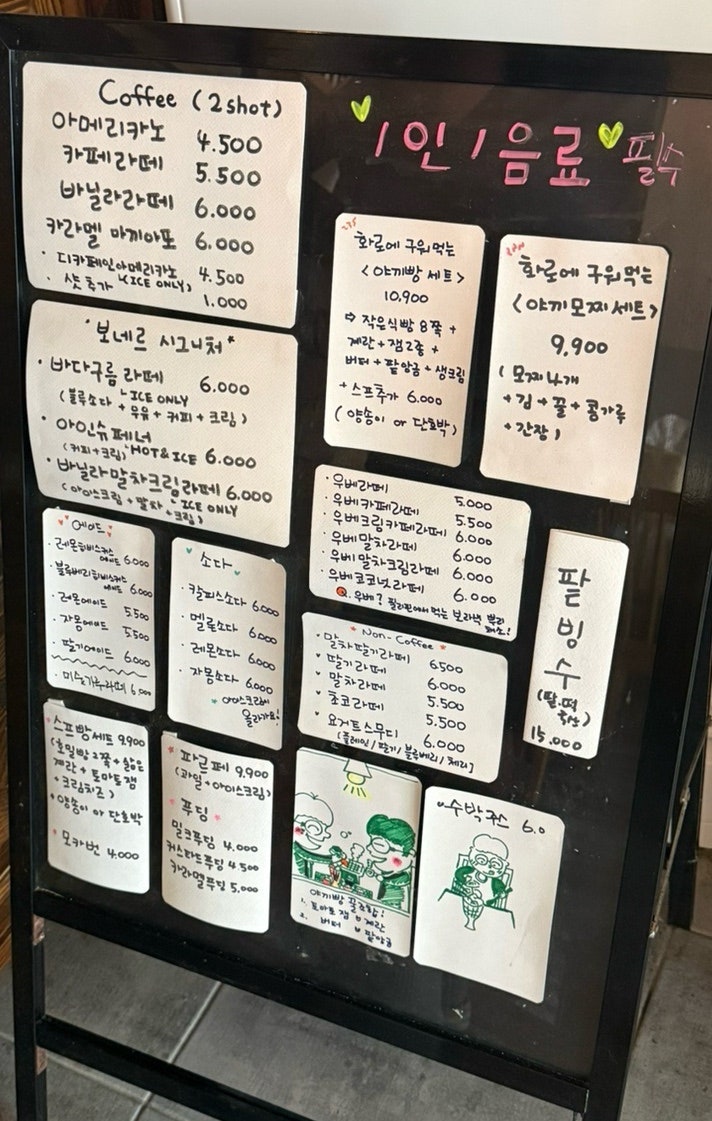 Coffee (2shot)
아메리카노 4.500
카페라떼 5.500
바닐라라떼 6.000
카라멜 마끼아또 6.000
· 디카페인아메리카노 4.500
(ICE ONLY)
· 샷추가 1.000
1인 1음료 필수
"보네르 시그니처"
· 바다구름 라떼 6.000
ICE ONLY
(블루소다 + 우유 + 커피 + 크림)
· 아인슈페너 6.000
(커피+크림) HOT&ICE
· 바닐라말차크림라떼 6.000
ICE ONLY
(아이스크림 + 말차 + 크림)
화로에 구워먹는
<야끼빵 세트>
10,900
⇨ 작은식빵 8쪽 +
계란 + 잼2종 +
버터 + 팥앙금 + 생크림
+ 스프추가 6.000
(양송이 or 단호박)
화로에 구워먹는
<야끼모찌세트>
9,900
(모찌4개
+김+꿀+콩가루
+간장)
· 우베라떼 5.000
· 우베카페라떼 5.500
· 우베크림카페라떼 6.000
· 우베말차라떼 6.000
· 우베말차크림라떼 6.000
· 우베코코넛라떼 6.000
Q. 우베? 필리핀에서 먹는 보라색 뿌리
채소!
에이드
· 레몬히비스커스
에이드 6.000
· 블루베리히비스커스
에이드 6.000
· 레몬에이드 5.500
· 자몽에이드 5.500
· 딸기에이드 6.000
· 미숫가루라떼 6.000
소다
· 칼피스소다 6.000
· 멜론소다 6.000
· 레몬소다 6.000
· 자몽소다 6.000
* 아이스크림
올라가요!
* Non-Coffee *
· 말차딸기라떼 6500
· 딸기라떼 6.000
· 말차라떼 5.500
· 초코라떼 5.500
· 요거트스무디 6.000
(플레인/딸기/블루베리/체리)
팥
빙
수
(팥.떡
국산)
15.000
스프빵세트 9.900
(호밀빵2쪽+삶은
계란 + 토마토잼
+크림치즈)
+양송이 or 단호박
* 모카번 4.000
* 파르페 9,900
(과일+아이스크림)
* 푸딩 *
밀크푸딩 4.000
커스타드푸딩 4.500
카라멜푸딩 5,000
야끼빵 꿀조합!
1. 토마토잼 ♡ 계란
2. 버터 ♡ 팥앙금
수박주스 6.0